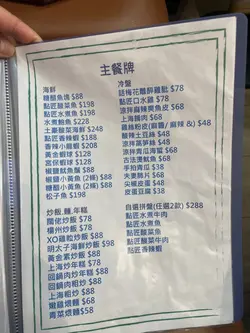 主餐牌
海鮮
糖醋魚塊 $88
點匠酸菜魚 $198
點匠水煮魚 $198
水煮鮑魚 $228
土豪酸菜海鮮 $248
點匠香辣蝦 $188
香辣小龍蝦 $200
黃金蝦球 $128
宮保蝦球 $128
椒鹽魷魚鬚 $88
椒鹽小黃魚 (2條) $88
糖醋小黃魚 (2條) $88
松子魚 $198
炒飯,麵,年糕
闊佬炒飯 $78
楊州炒飯 $78
XO雞粒炒飯 $88
明太子海鮮炒飯 $98
黃金素炒飯 $88
上海炒年糕 $78
回鍋肉炒年糕 $88
回鍋肉粗炒 $88
上海粗炒 $88
嫩雞煨麵 $68
青菜煨麵 $58
冷盤
話梅花雕醉雞肶 $78
點匠口水雞 $78
涼拌麻辣爽魚皮 $68
上海燻肉 $68
雞絲粉皮(麻醬/ 麻辣 &) $48
酸辣土豆絲 $48
涼拌萵筍絲 $48
涼拌青瓜海蜇 $68
古法燙魷魚 $68
手拍青瓜 $38
夫妻肺片 $68
尖椒皮蛋 $48
皮蛋豆腐 $48
自選拼盤(任選2款) $288
點匠水煮牛肉
點匠水煮魚
點匠酸菜魚
點匠酸菜牛肉
點匠香辣蝦